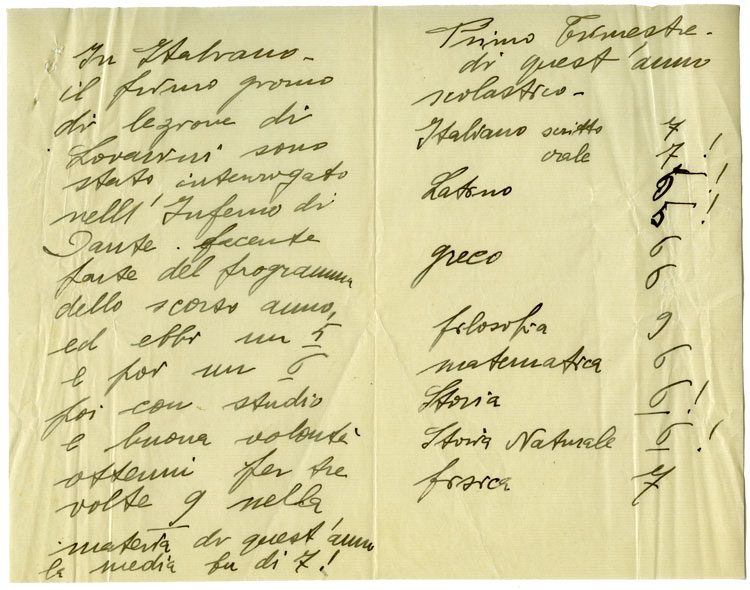 In Italiano -
il primo giorno
di lezione di
sono
stato interrogato
nell' Inferno di
Dante. facente
parte del programma
dello scorso anno,
ed ebbi un 5
e poi un 6
poi con studio
e buona volontà
ottenni per tre
volte 9 nella
materia di quest'anno
la media fu di 7!
Primo Trimestre -
di quest'anno
scolastico -
Italiano scritto 7
orale 7!
Latino 6!
5!
greco 6
6
filosofia 9
matematica 6
Storia 6!
Storia Naturale 6!
fisica 7